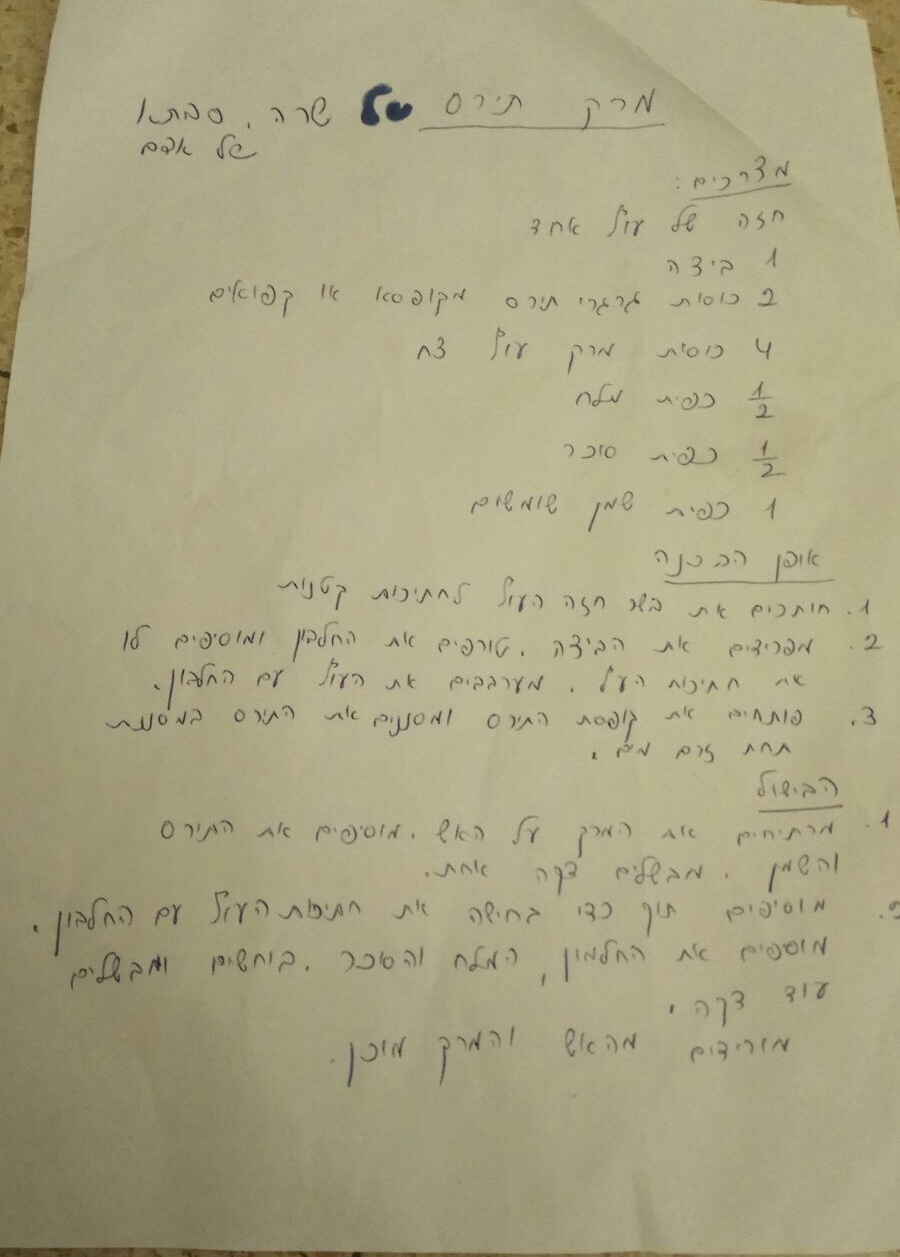 מרק תירס של שרה, סבתא
של אדם
מצרכים:
חזה של עוף אחד
1 ביצה
2 כוסות גרגרי תירס מקופסא או קפואים
4 כוסות מרק עוף צח
1/2 כפית מלח
1/2 כפית סוכר
1 כפית שמן שומשום
אופן ההכנה
1. חותכים את בשר חזה העוף לחתיכות קטנות
2. מפרידים את הביצה. טורפים את החלבון ומוסיפים לו
את חתיכות העוף. מערבבים את העוף עם החלבון.
3. פותחים את קופסת התירס ומסננים את התירס במסננת
תחת זרם מים.
הבישול
1. מרתיחים את המרק על האש. מוסיפים את התירס
והשמן. מבשלים דקה אחת.
2. מוסיפים תוך כדי בחישה את חתיכות העוף עם החלבון.
מוספים את החלמון, המלח והסכר. בוחשים ומבשלים
עוד דקה.
מורידים מהאש והמרק מוכן.